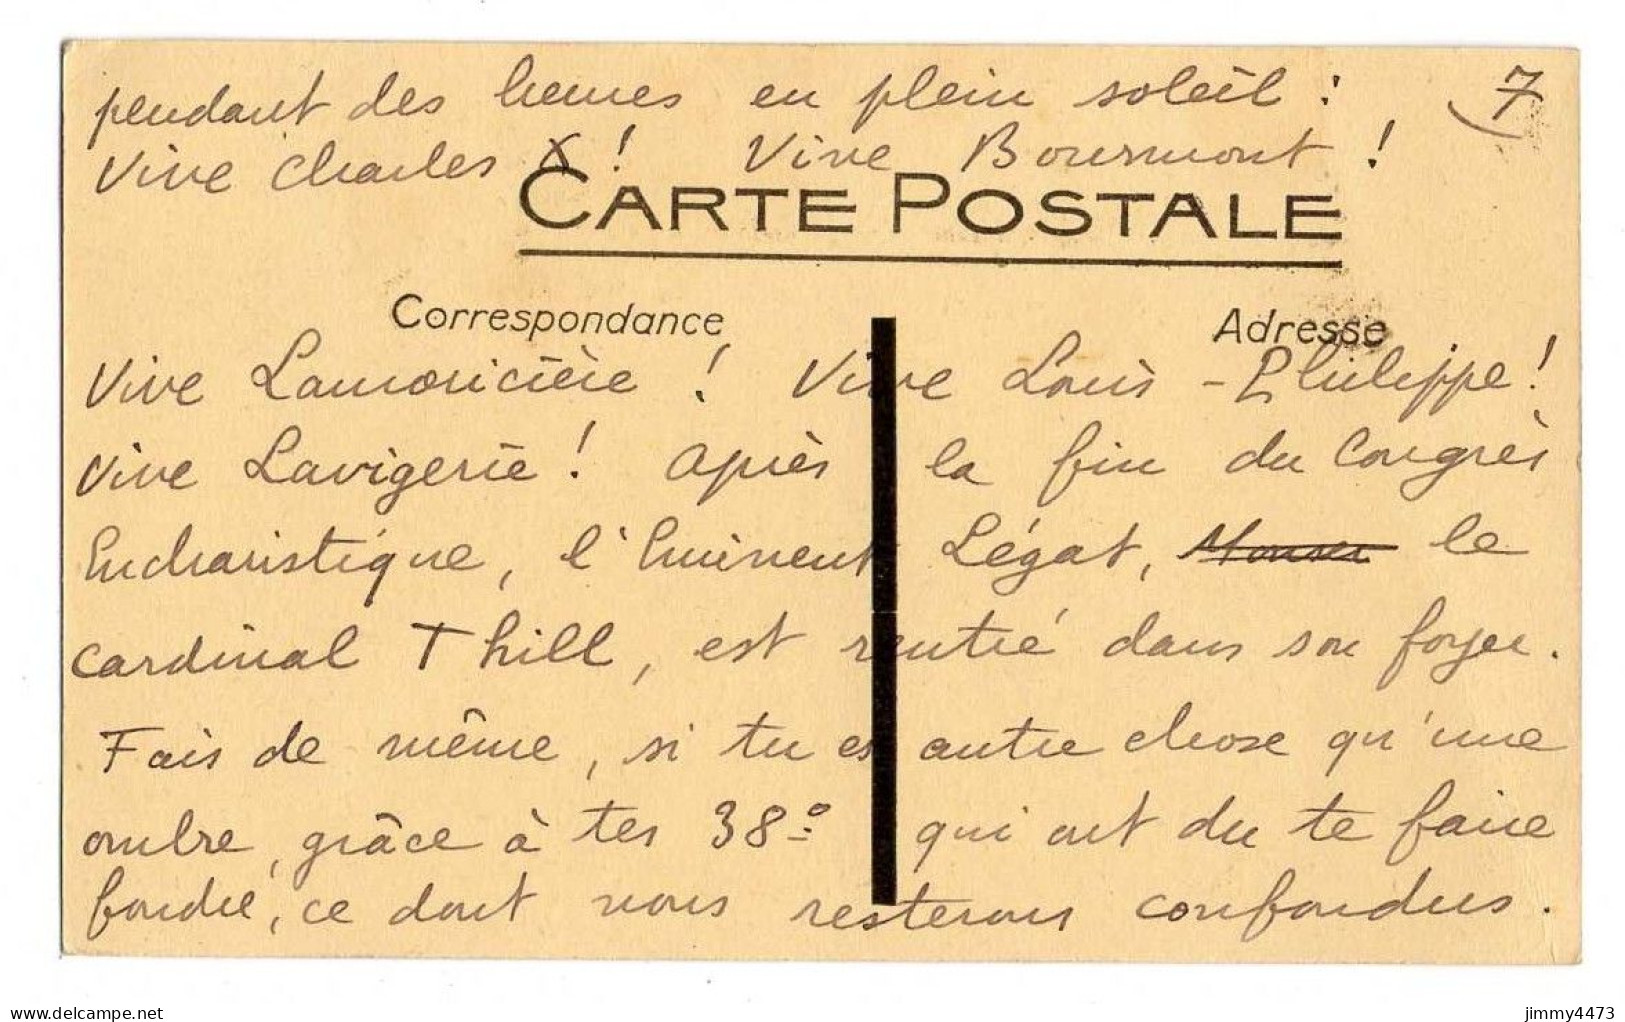 pendant des heures en plein soleil :
7
Vive Charles X ! Vive Bourmont !
CARTE POSTALE
Correspondance
Adresse
Vive Lamoricière ! Vive Louis-Philippe !
Vive Lavigerie ! Après la fin du Congrès
Eucharistique, l'Eminent Légat, le
cardinal Thill, est rentré dans son foyer.
Fais de même, si tu es autre chose qu'une
ombre, grâce à tes 38° qui ont du te faire
fondre, ce dont nous resterons confondus.
delcampe.net
jimmy4473